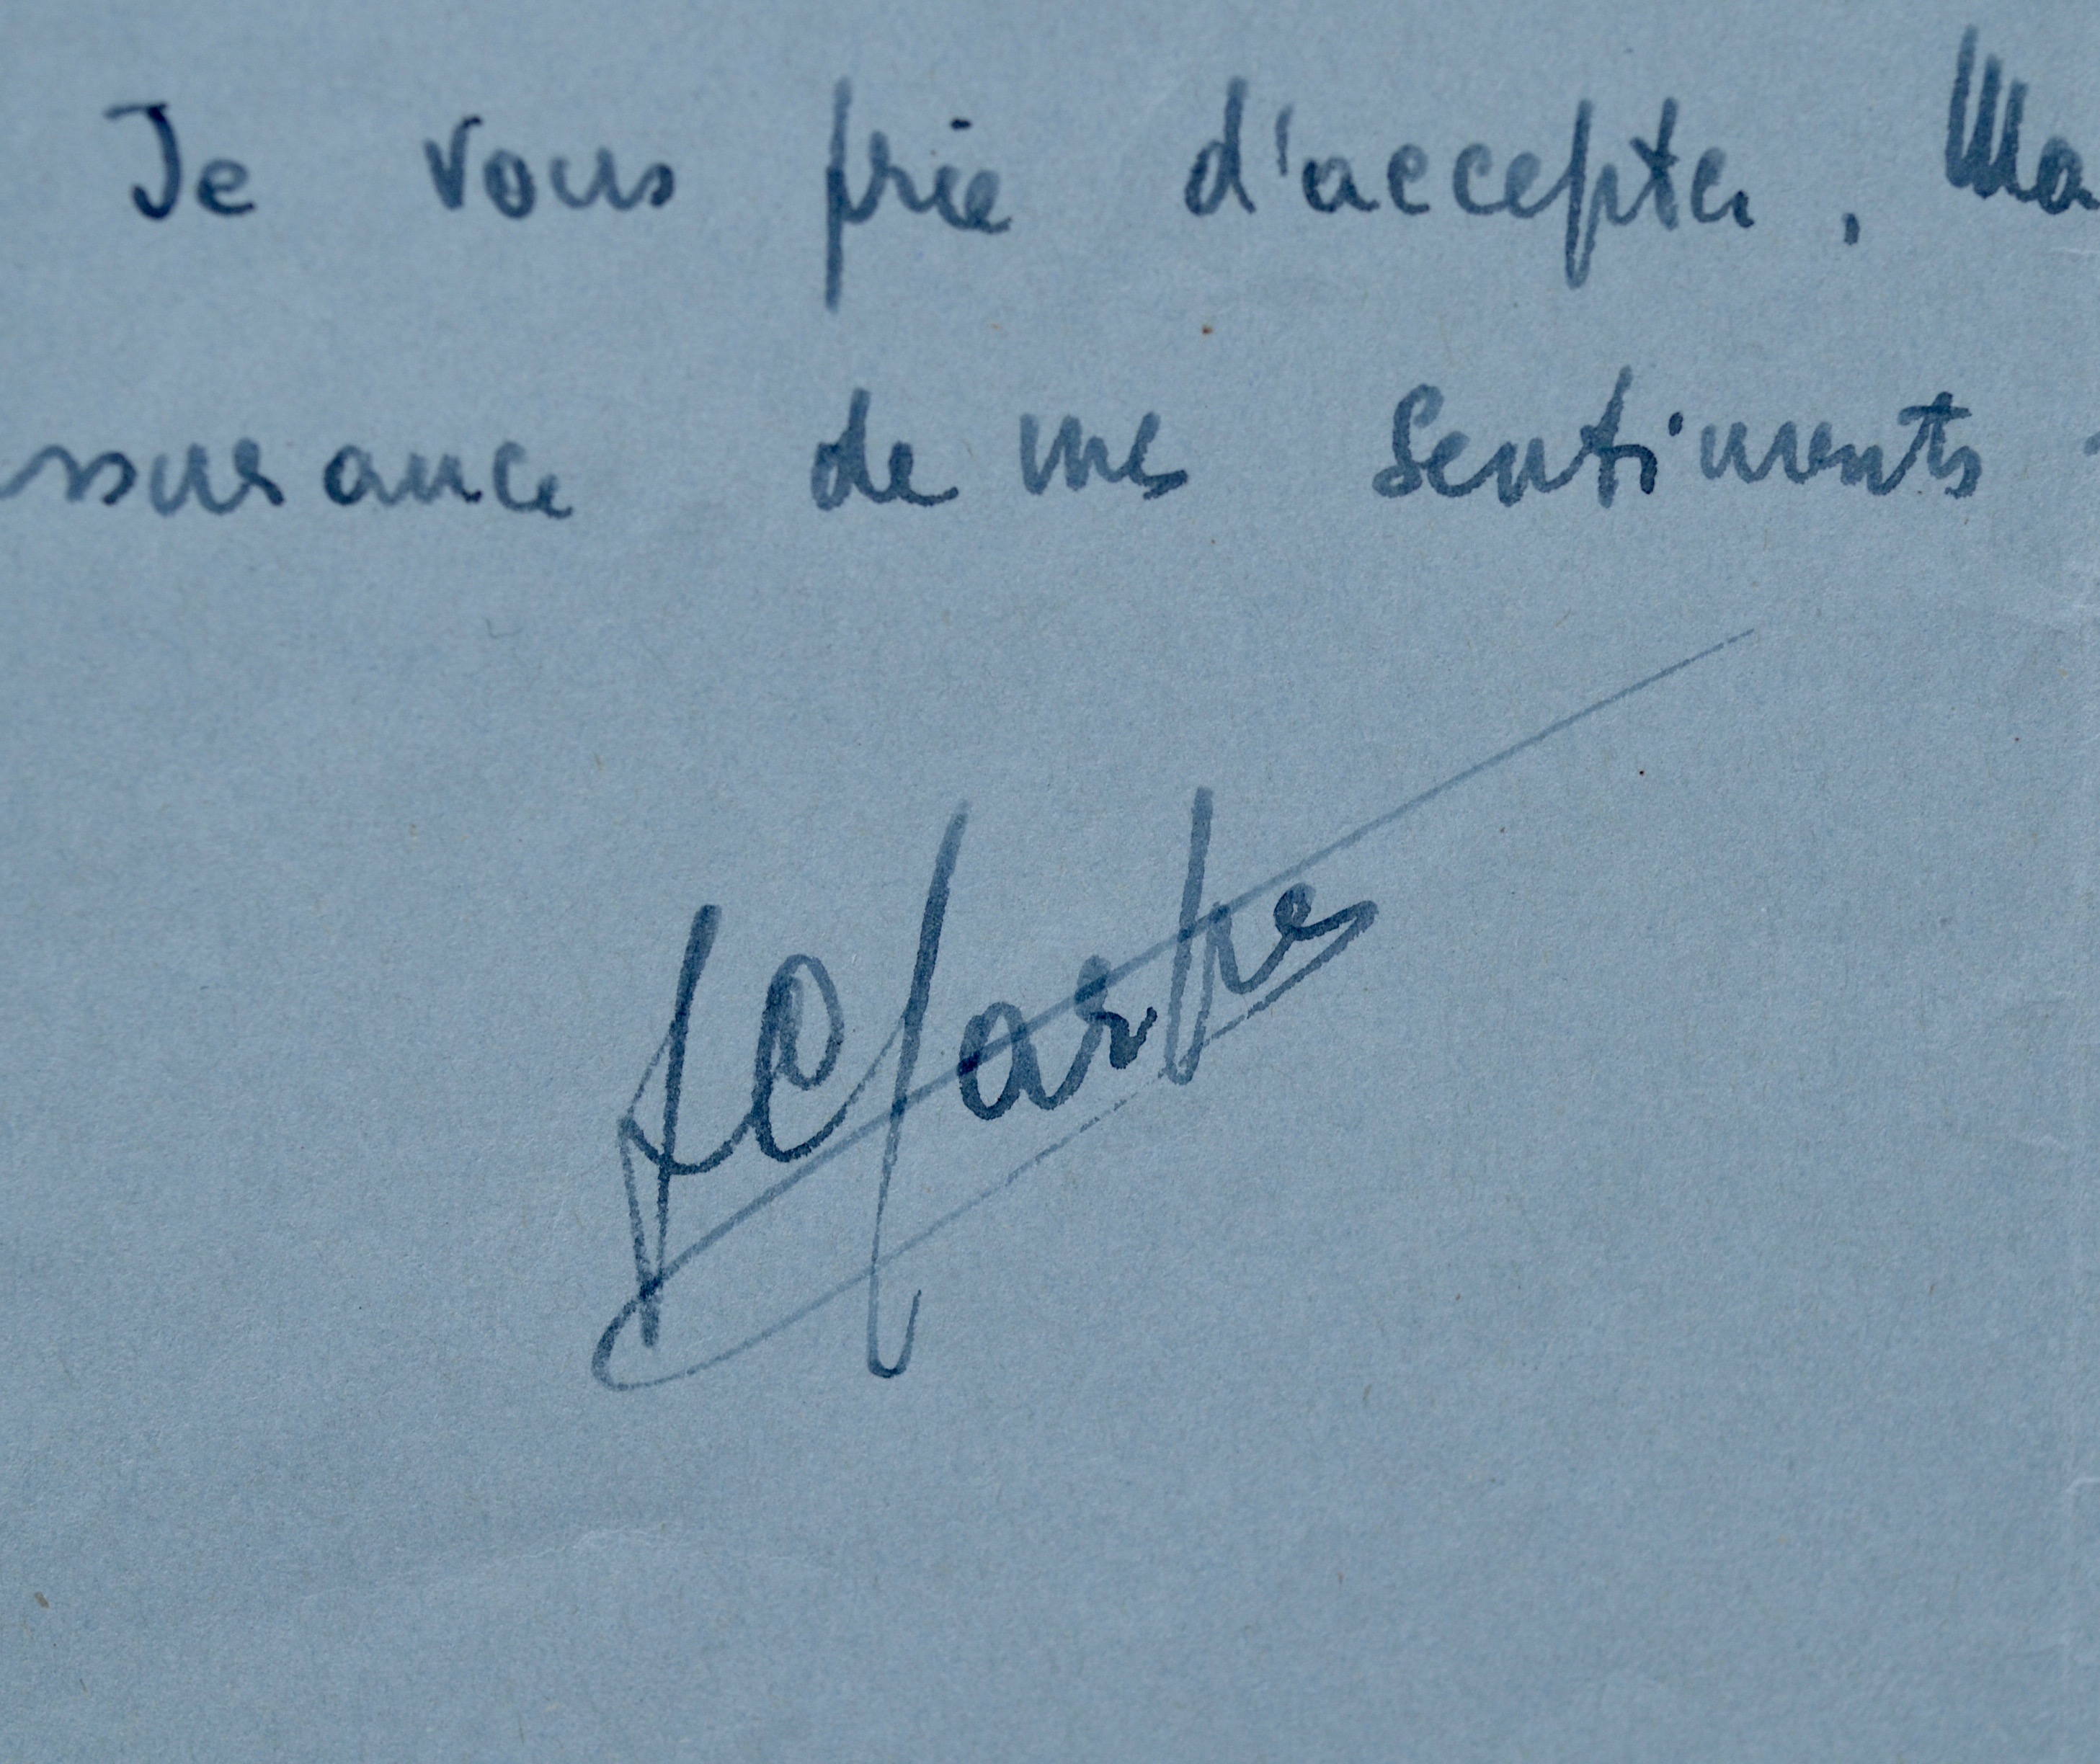 Je vous prie d'accepter, Ma
ssurance de mes sentiments
JPSartre